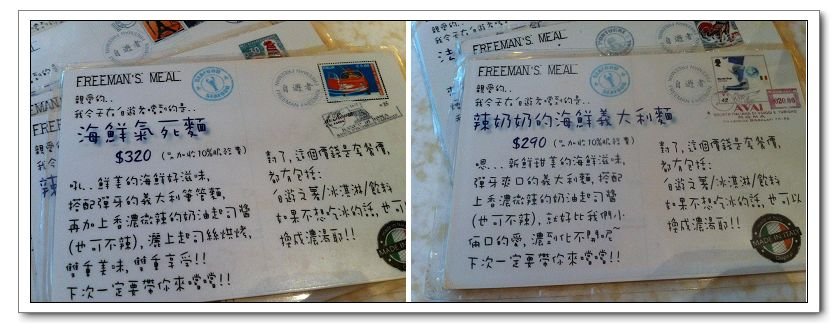 FREEMAN'S MEAL
自遊者
親愛的..
我今天在自遊者嚐到的是..
海鮮氣死麵
$320 (需加收10%服務費)
吼.. 鮮美的海鮮好滋味,
搭配彈牙的義大利筆管麵,
再加上香濃微辣的奶油起司醬
(也可不辣), 灑上起司絲烘烤,
雙重美味, 雙重享受!!
下次一定要帶你來嚐嚐!!
對了, 這個價錢是套餐價,
都有包括:
自遊之薯/冰淇淋/飲料
如果不想吃冰的話, 也可
換成濃湯耶!!
MADE IN ITALY
FREEMAN'S MEAL
自遊者
親愛的..
我今天在自遊者嚐到的是..
辣奶奶的海鮮義大利麵
$290 (需加收10%服務費)
嗯... 新鮮甜美的海鮮滋味,
彈牙爽口的義大利麵, 搭配
香濃微辣的奶油起司醬
(也可不辣), 就好比我們小
倆口的愛, 濃到化不開呢~
下次一定要帶你來嚐嚐!!
對了, 這個價錢是套餐價,
都有包括:
自遊之薯/冰淇淋/飲料
如果不想吃冰的話, 也可以
換成濃湯耶!!
MADE IN ITALY